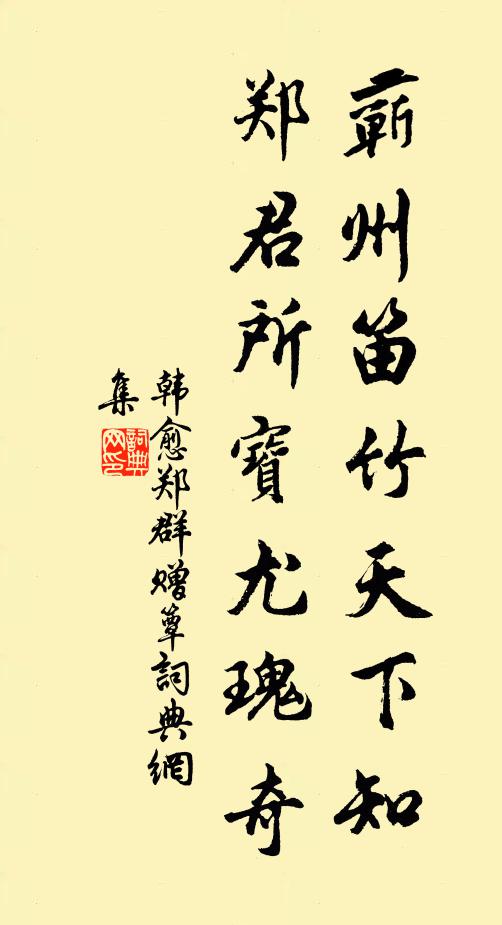 蕲州笛竹天下知
郑君所寶尤瑰奇
韩愈郑群赠簟詞典網
集
詞典网印